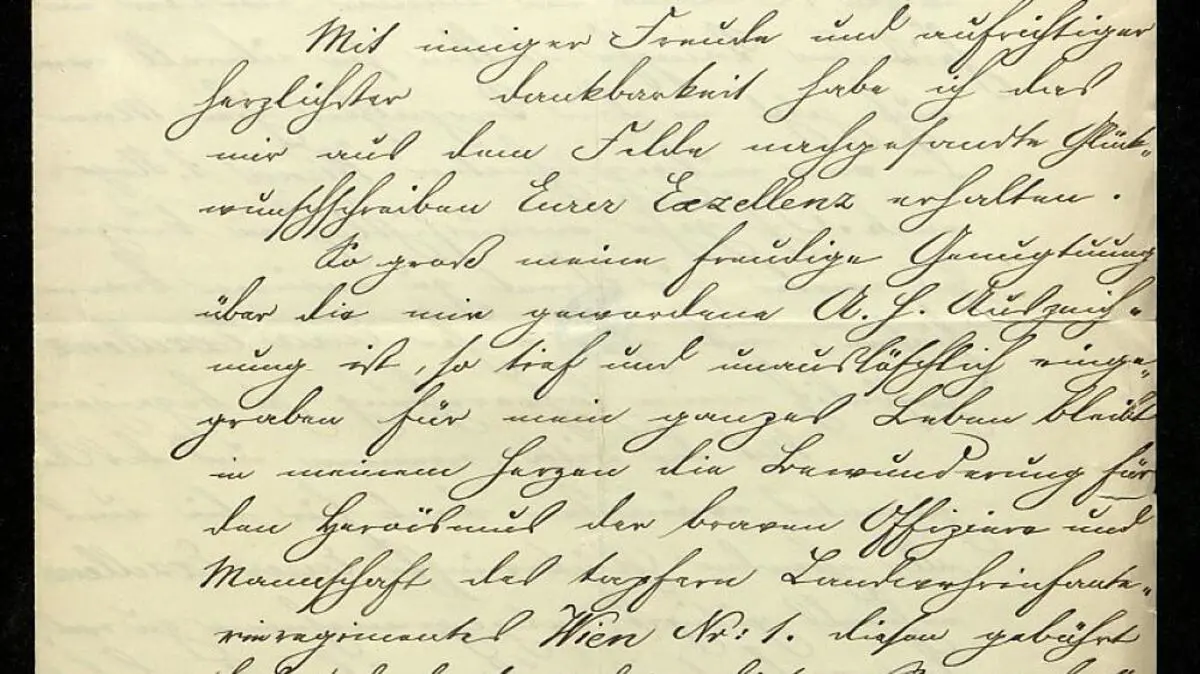 Mit inniger Freude und aufrichtiger
herzlichster Dankbarkeit habe ich das
mir aus dem Felde nachgesandte Glück-
wunschschreiben Eurer Exzellenz erhalten.
So groß meine freudige Genugtuung
über die mir gewordene A. h. Auszeich-
nung ist, so tief und unauslöschlich einge-
graben für mein ganzes Leben bleibt
in meinem Herzen die Bewunderung für
den Heroismus der braven Offiziere und
Mannschaft des tapfern Landwehrinfante-
rieregimentes Wien Nr: 1. diesen gebührt